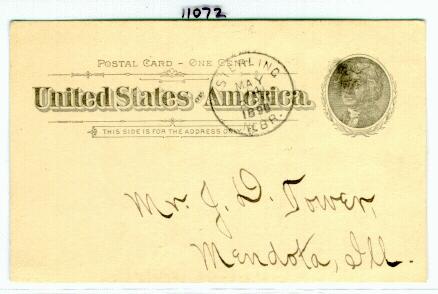 11072
POSTAL CARD – ONE CENT
United States of America.
THIS SIDE IS FOR THE ADDRESS ONLY
STERLING
MAY
NEBR.
Mr. J. D. Tower,
Mendota, Ill.